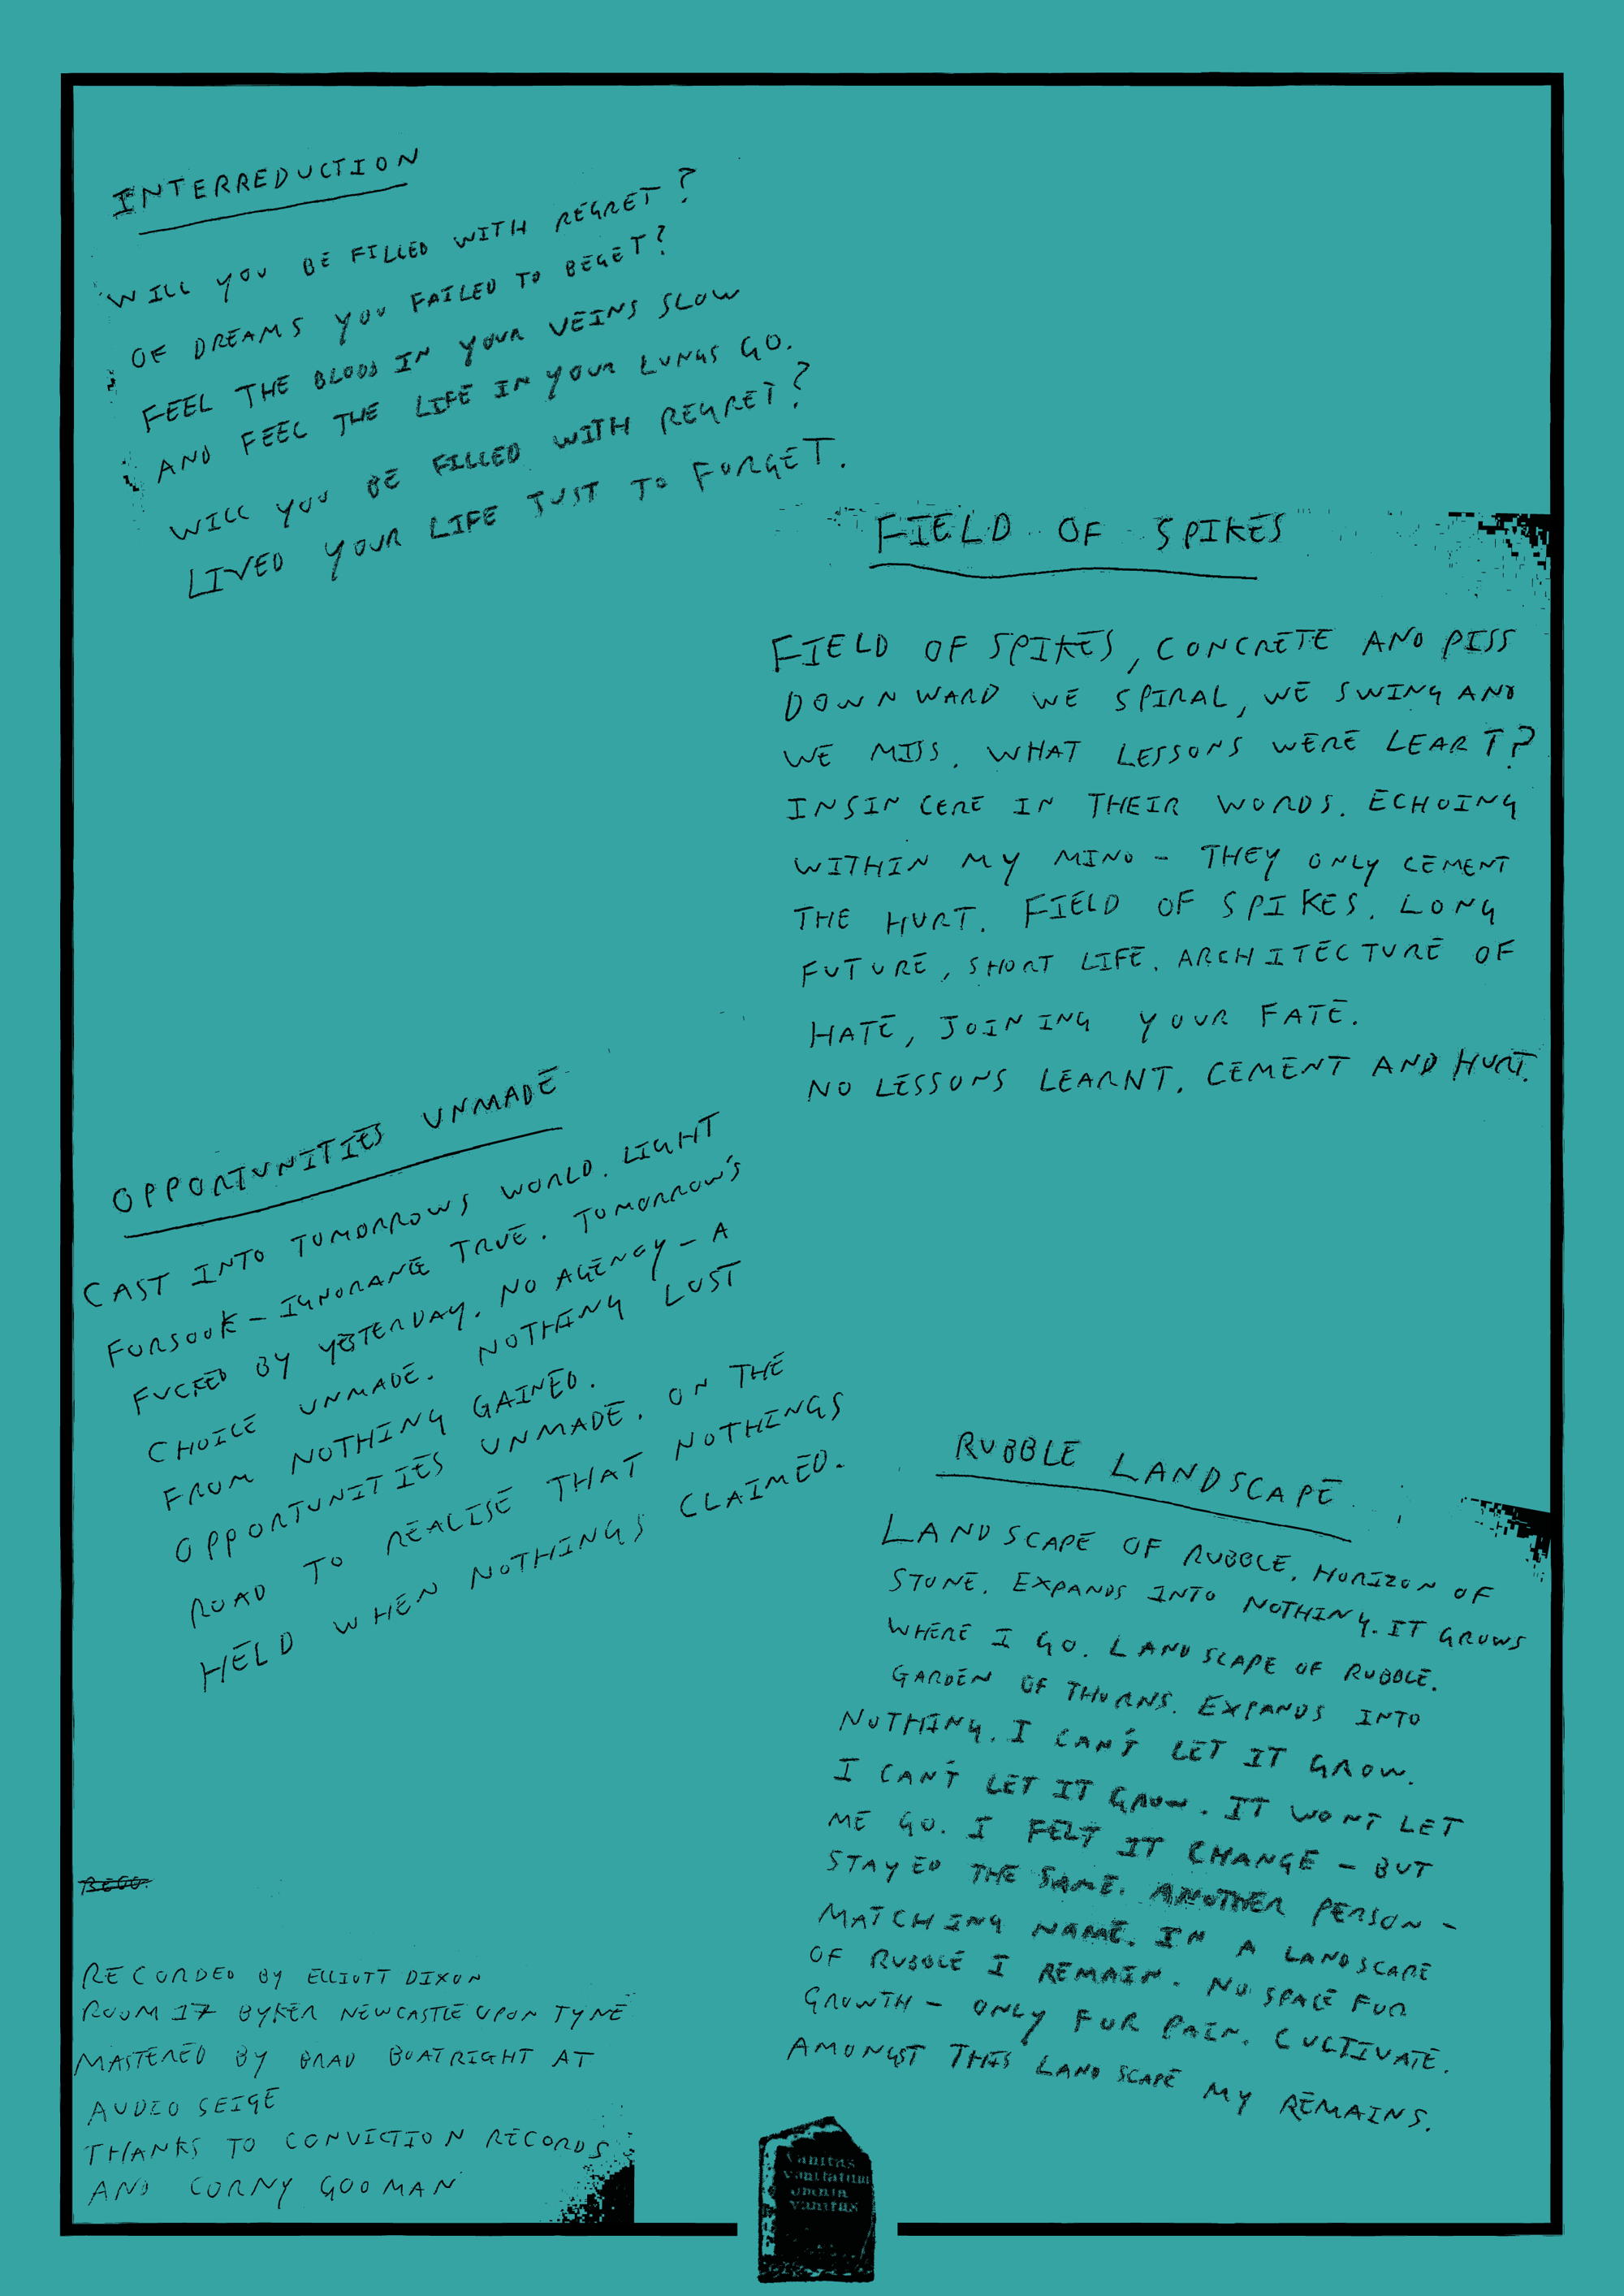 INTERREDUCTION
WILL YOU BE FILLED WITH REGRET?
OF DREAMS YOU FAILED TO BEGET?
FEEL THE BLOOD IN YOUR VEINS SLOW
AND FEEL THE LIFE IN YOUR LUNGS GO.
WILL YOU BE FILLED WITH REGRET?
LIVED YOUR LIFE JUST TO FORGET.
FIELD OF SPIKES
FIELD OF SPIKES, CONCRETE AND PISS
DOWNWARD WE SPIRAL, WE SWING AND
WE MISS. WHAT LESSONS WERE LEART?
INSINCERE IN THEIR WORDS. ECHOING
WITHIN MY MIND - THEY ONLY CEMENT
THE HURT. FIELD OF SPIKES. LONG
FUTURE, SHORT LIFE. ARCHITECTURE OF
HATE, JOINING YOUR FATE.
NO LESSONS LEARNT. CEMENT AND HURT.
OPPORTUNITIES UNMADE
CAST INTO TOMORROWS WORLD. LIGHT
FORSOOK - IGNORANCE TRUE. TOMORROW'S
FUCKED BY YESTERDAY. NO AGENCY - A
CHOICE UNMADE. NOTHING LOST
FROM NOTHING GAINED.
OPPORTUNITIES UNMADE. ON THE
ROAD TO REALISE THAT NOTHINGS
HELD WHEN NOTHINGS CLAIMED.
RUBBLE LANDSCAPE
LANDSCAPE OF RUBBLE. HORIZON OF
STONE. EXPANDS INTO NOTHING. IT GROWS
WHERE I GO. LANDSCAPE OF RUBBLE.
GARDEN OF THORNS. EXPANDS INTO
NOTHING. I CAN'T LET IT GROW.
I CAN'T LET IT GROW. IT WONT LET
ME GO. I FELT IT CHANGE - BUT
STAYED THE SAME. ANOTHER PERSON -
MATCHING NAME. IN A LANDSCAPE
OF RUBBLE I REMAIN. NO SPACE FOR
GROWTH - ONLY FOR PAIN. CULTIVATE.
AMONGST THIS LANDSCAPE MY REMAINS.
RECORDED BY ELLIOTT DIXON
ROOM 17 BYKER NEWCASTLE UPON TYNE
MASTERED BY BRAD BOATRIGHT AT
AUDIO SEIGE
THANKS TO CONVICTION RECORDS
AND CORNY GOOMAN
Vanitas
vanitatum
omnia
vanitas